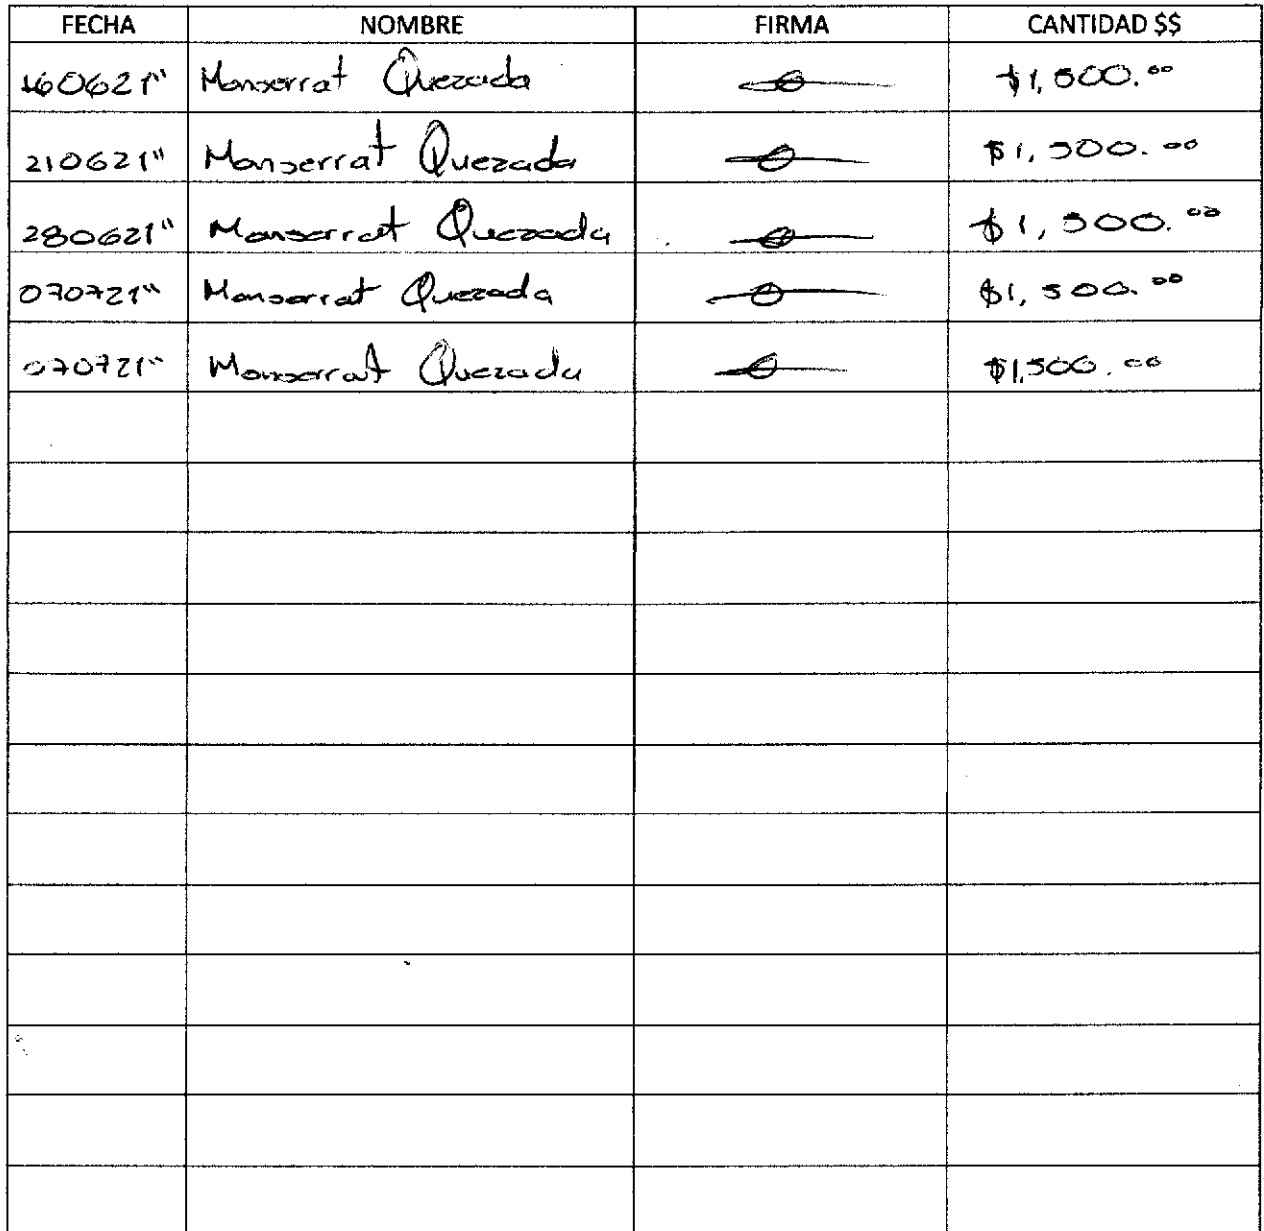 FECHA NOMBRE FIRMA CANTIDAD $$
160621" Monserrat Quezada $1,500.00
210621" Monserrat Quezada $1,500.00
280621" Monserrat Quezada $1,500.00
070721" Monserrat Quezada $1,500.00
070721" Monserrat Quezada $1,500.00